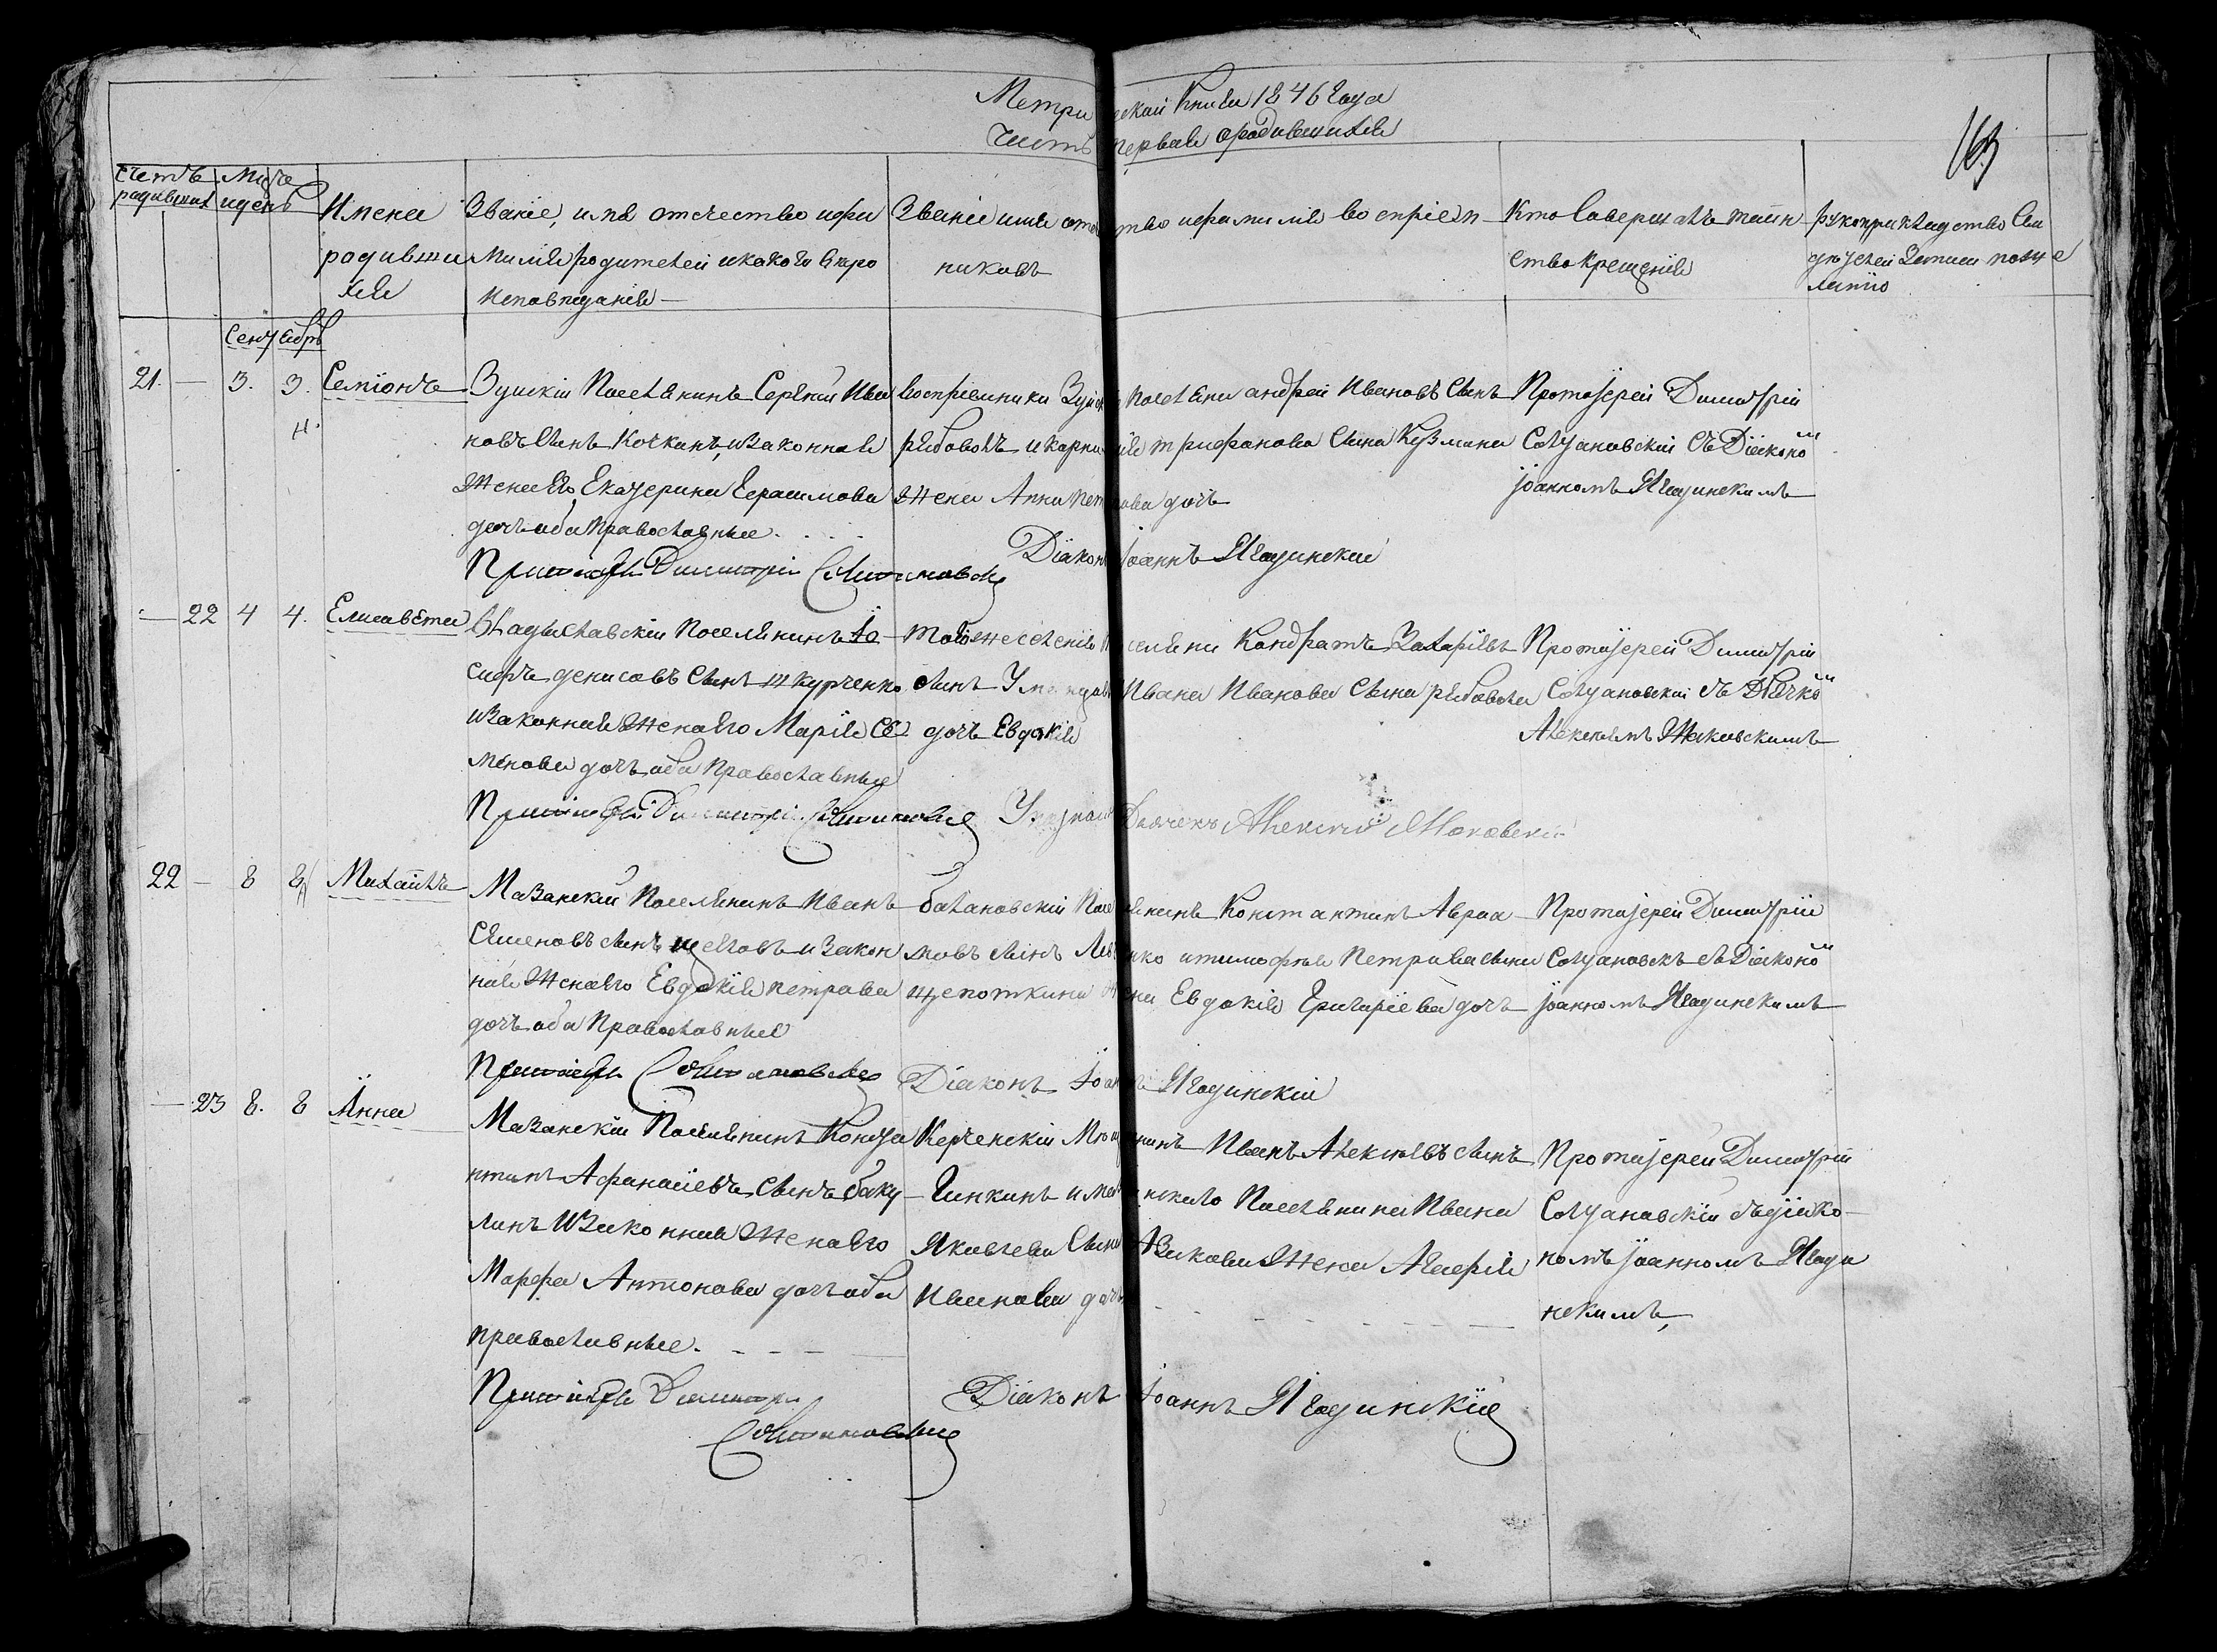 Метрической Книги 1846 Года
Часть первая о родившихся
163
Счетъ родившихся
Месяцъ и день
Имена родившихся
Званіе, имя отчество и фамилія родителей и какого вероисповеданія
Званіе имя отчество и фамилія воспріемниковъ
Кто совершалъ таинство крещенія
Рукоприкладство свидетелей записи по желанію
Сентябрь
21. — 3. 3. Семіонъ
4.
Зуйскій Поселянинъ Сергий Ива
новъ сынъ Кочкинъ, и законная
жена Его Екатерина Герасимова
дочь оба православные.
Воспріемники Зуйскія Поселяни андрей Ивановъ сынъ
рябоволъ и карпа трифанова сына Кузмина
жена Анна Петрова дочь
Протоіерей Димитрій
Солтановскій съ Діяконом
Іоанномъ Ягодинскимъ
Протоіерей Димитрій Солтановскій
Діаконъ Іоаннъ Ягодинскій
— 22 4 4. Елисавета
Владиславскій Поселянинъ Іо
сифъ денисовъ сынъ шкурченко
и законная жена Его Марія Се
менова дочь оба Православные
Того же селенія Поселяни Кондратъ Захаріевъ
сынъ Ивана Иванова сына рябовола
дочь Евдокія
Протоіерей Димитрій
Солтановскій съ Дьячком
Алексеемъ Маковскимъ
Протоіерей Димитрій Солтановскій
Дьячекъ Алексей Маковскій
22 — 8 8 Михаилъ
Мазанскій Поселянинъ Иванъ
Семеновъ сынъ и закон
ная жена Его Евдокія петрова
дочь оба Православные
балановскій Поселянинъ Константинъ Авраа
мовъ сынъ и тимофея Петрова сына
щепоткина жена Евдокія Григоріева дочь
Протоіерей Димитрій
Солтановскъ съ Діяконом
Іоанномъ Ягодинскимъ
Протоіерей Солтановскій
Діаконъ Іоаннъ Ягодинскій
— 23 8. 8 Анна
Мазанскій Поселянинъ Конста
нтинъ Афанасіевъ сынъ баку
линъ и законная жена Его
Марфа Антонова дочь оба
православные.
Керченскій Мещанинъ Иванъ Алексеевъ сынъ
Гинкинъ и мазанскаго Поселянина Ивана
Яковлева сына Азикова жена Агафія
Иванова дочь
Протоіерей Димитрій
Солтановскій съ діяко
номъ Іоанномъ Ягоди
нскимъ,
Протоіерей Димитрій
Солтановскій
Діаконъ Іоаннъ Ягодинскій